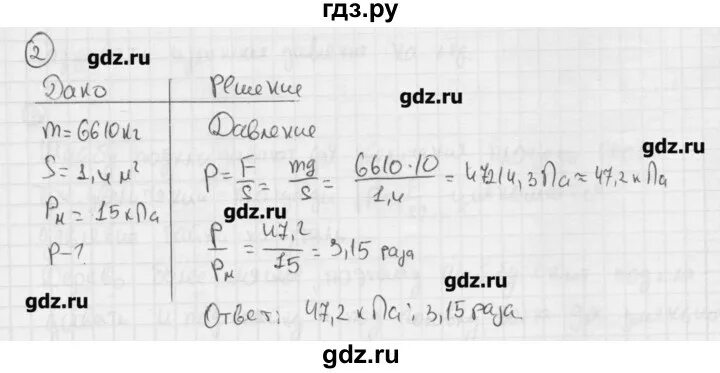 гдз.ру
2
gdz.ru
Дано Решение
gdz.ru
m = 6610 кг Давление
gdz.ru
S = 1,4 м² P = F/S = mg/S = 6610·10/1,4 = 47214,3 Па = 47,2 кПа
gdz.ru
Pм = 15 кПа
P - ? P/Pм = 47,2/15 = 3,15 раза
gdz.ru
gdz.ru
Ответ: 47,2 кПа; 3,15 раза
gdz.ru